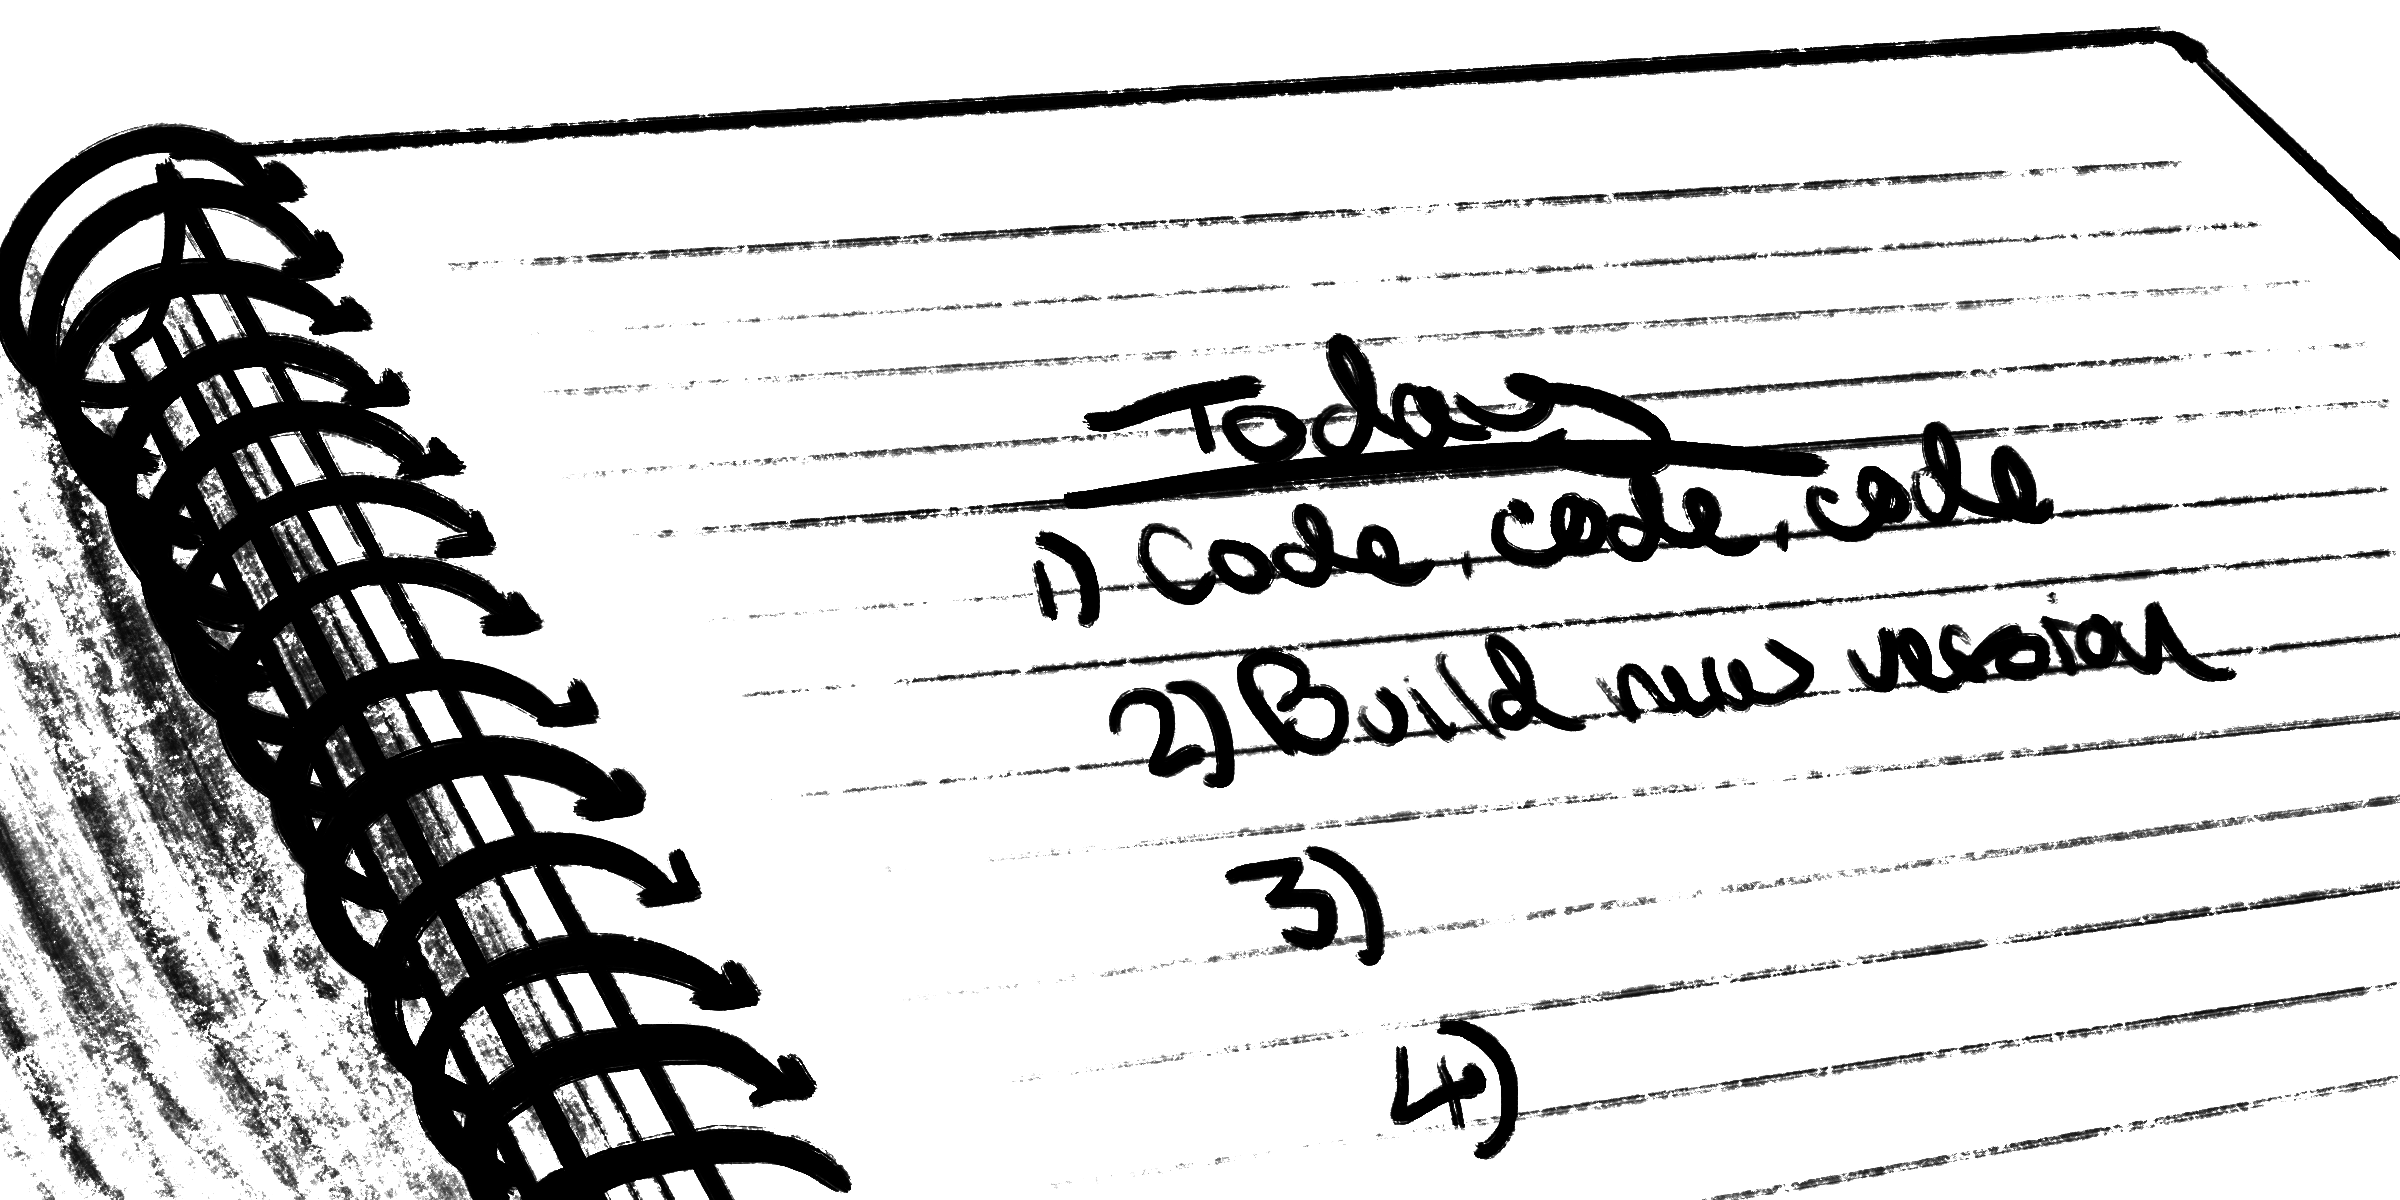 Today
1) Code, code, code
2) Build new version
3)
4)